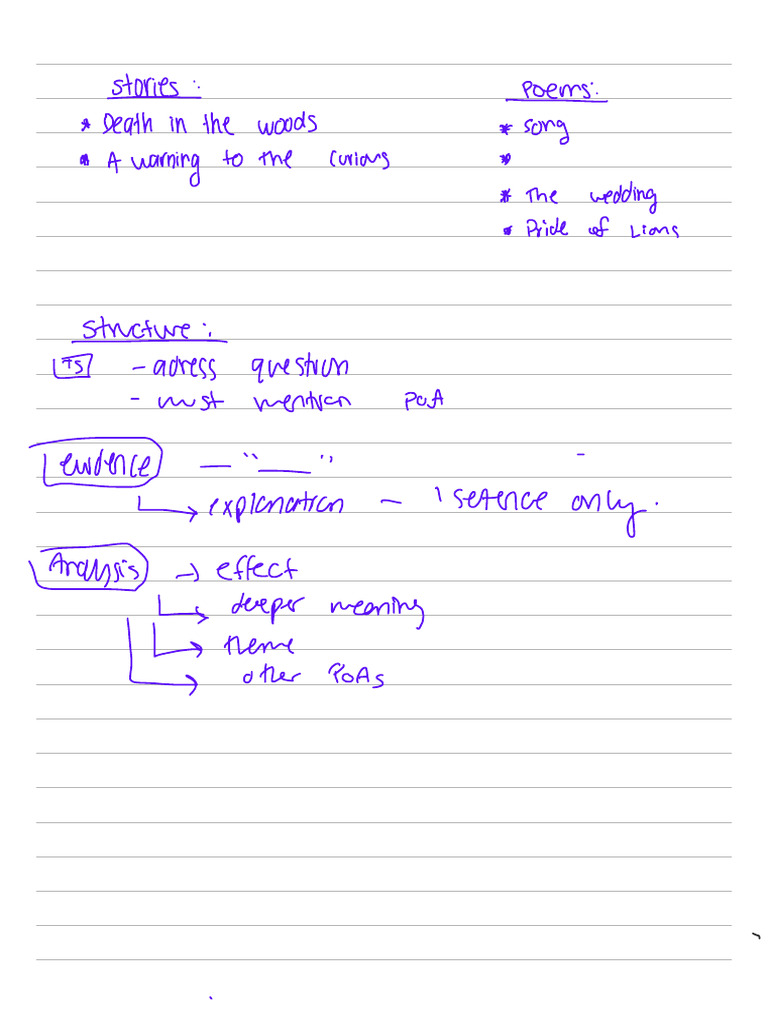 Stories:
* Death in the woods
* A warning to the curious
Poems:
* Song
*
* The wedding
* Pride of Lions
Structure:
TS - adress question
- must mention PoA
evidence — "____"
↳ explanation - 1 setence only.
Analysis → effect
↳ deeper meaning
↳ theme
↳ other PoAs